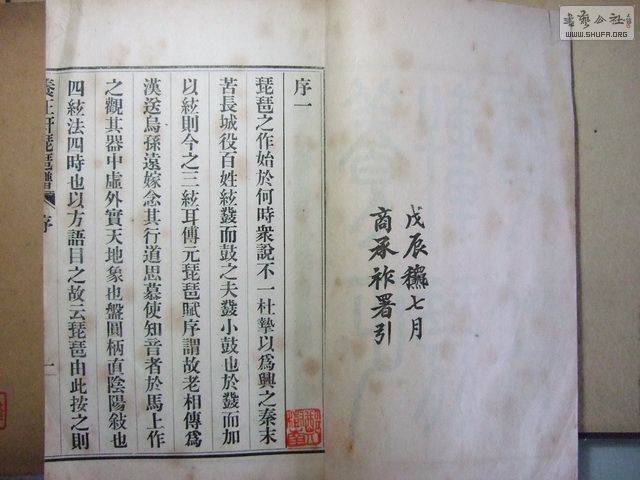 戊辰龝七月
商承祚署引
序一
琵琶之作始於何時衆說不一杜摯以爲興之秦末
苦長城役百姓絃鼗而鼓之夫鼗小鼓也於鼗而加
以絃則今之三絃耳傅元琵琶賦序謂故老相傳爲
漢送烏孫遠嫁念其行道思慕使知音者於馬上作
之觀其器中虛外實天地象也盤圓柄直陰陽敍也
四絃法四時也以方語目之故云琵琶由此按之則
養正軒琵琶譜
序
一
書藝公社
WWW.SHUFA.ORG